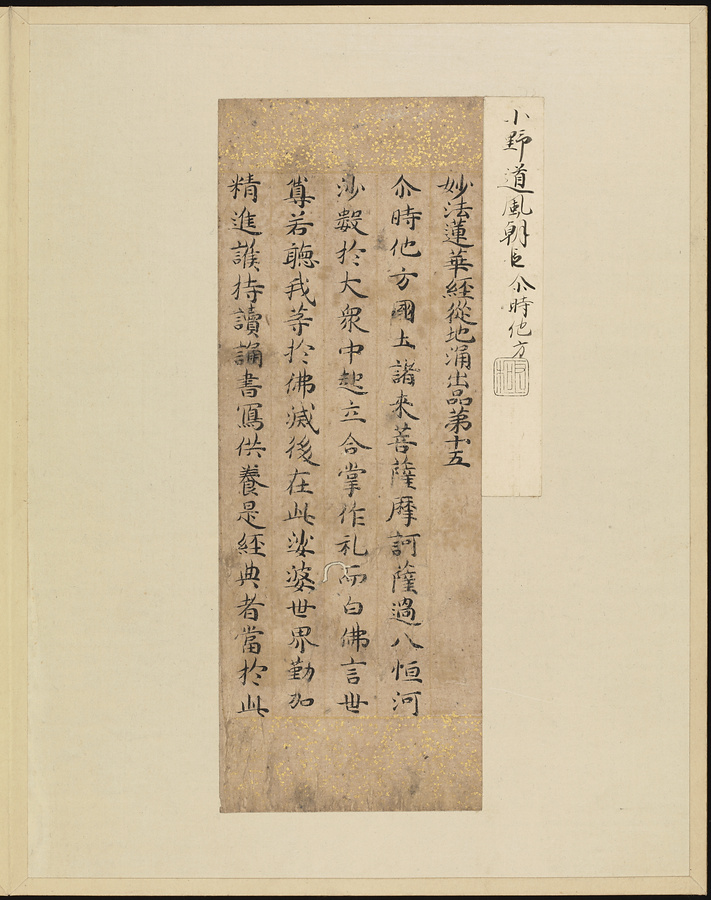 小野道風朝臣 尒時他方
妙法蓮華經從地涌出品第十五
尒時他方國土諸來菩薩摩訶薩過八恒河
沙數於大衆中起立合掌作礼而白佛言世
尊若聴我等於佛滅後在此娑婆世界勤加
精進護持讀誦書寫供養是經典者當於此